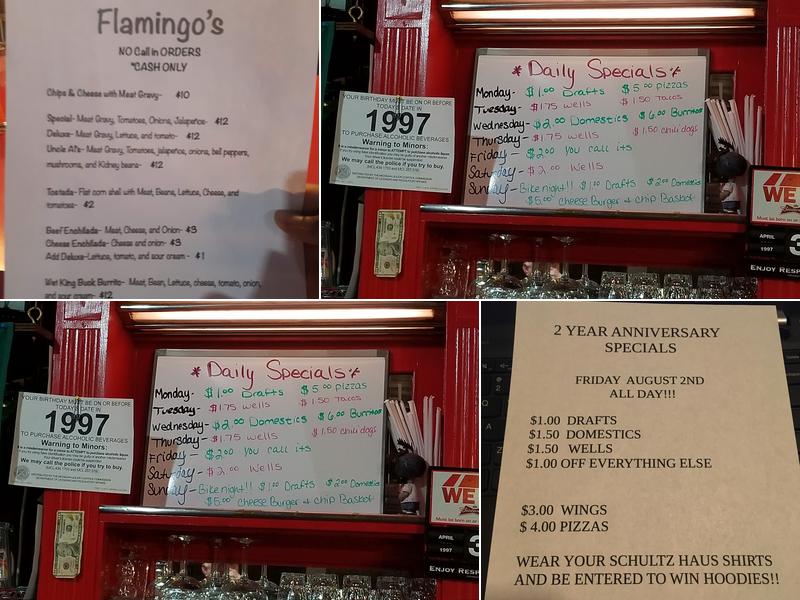 Flamingo's
NO Call in ORDERS
*CASH ONLY
Chips & Cheese with Meat Gravy- $10
Special- Meat Gravy, Tomatoes, Onions, Jalapeños- $12
Deluxe- Meat Gravy, Lettuce, and tomato- $12
Uncle Al's- Meat Gravy, Tomatoes, jalapeños, onions, bell peppers,
mushrooms, and Kidney beans- $12
Tostada- Flat corn shell with Meat, Beans, Lettuce, Cheese, and
tomatoes- $2
Beef Enchilada- Meat, Cheese, and Onion- $3
Cheese Enchilada- Cheese and onion- $3
Add Deluxe- Lettuce, tomato, and sour cream- $1
Wet King Buck Burrito- Meat, Bean, Lettuce, cheese, tomato, onion,
and sour cream- $12
YOUR BIRTHDAY MUST BE ON OR BEFORE
TODAY'S DATE IN
1997
TO PURCHASE ALCOHOLIC BEVERAGES
Warning to Minors:
We may call the police if you try to buy.
* Daily Specials *
Monday- $1.00 Drafts $5.00 pizzas
Tuesday- $1.75 Wells $1.50 Tacos
Wednesday- $2.00 Domestics $6.00 Burritos
Thursday- $1.75 Wells $1.50 chili dogs
Friday- $2.00 you call its
Saturday- $2.00 Wells
Sunday- Bike night!! $1.00 Drafts $2.00 Domestics
$5.00 cheese Burger & chip Basket
WE
APRIL
1997
3
ENJOY RESP
YOUR BIRTHDAY MUST BE ON OR BEFORE
TODAY'S DATE IN
1997
TO PURCHASE ALCOHOLIC BEVERAGES
Warning to Minors:
We may call the police if you try to buy.
* Daily Specials *
Monday- $1.00 Drafts $5.00 pizzas
Tuesday- $1.75 Wells $1.50 Tacos
Wednesday- $2.00 Domestics $6.00 Burritos
Thursday- $1.75 Wells $1.50 chili dogs
Friday- $2.00 you call its
Saturday- $2.00 Wells
Sunday- Bike night!! $1.00 Drafts $2.00 Domestics
$5.00 cheese Burger & chip Basket
WE
APRIL
1997
3
ENJOY RESP
2 YEAR ANNIVERSARY
SPECIALS
FRIDAY AUGUST 2ND
ALL DAY!!!
$1.00 DRAFTS
$1.50 DOMESTICS
$1.50 WELLS
$1.00 OFF EVERYTHING ELSE
$3.00 WINGS
$ 4.00 PIZZAS
WEAR YOUR SCHULTZ HAUS SHIRTS
AND BE ENTERED TO WIN HOODIES!!